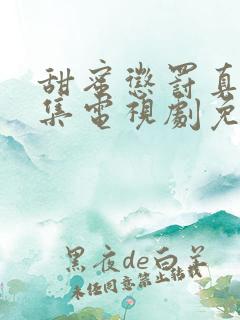 甜蜜懲罰真
集電視劇免
黑夜de白羊
未经同意禁止转载